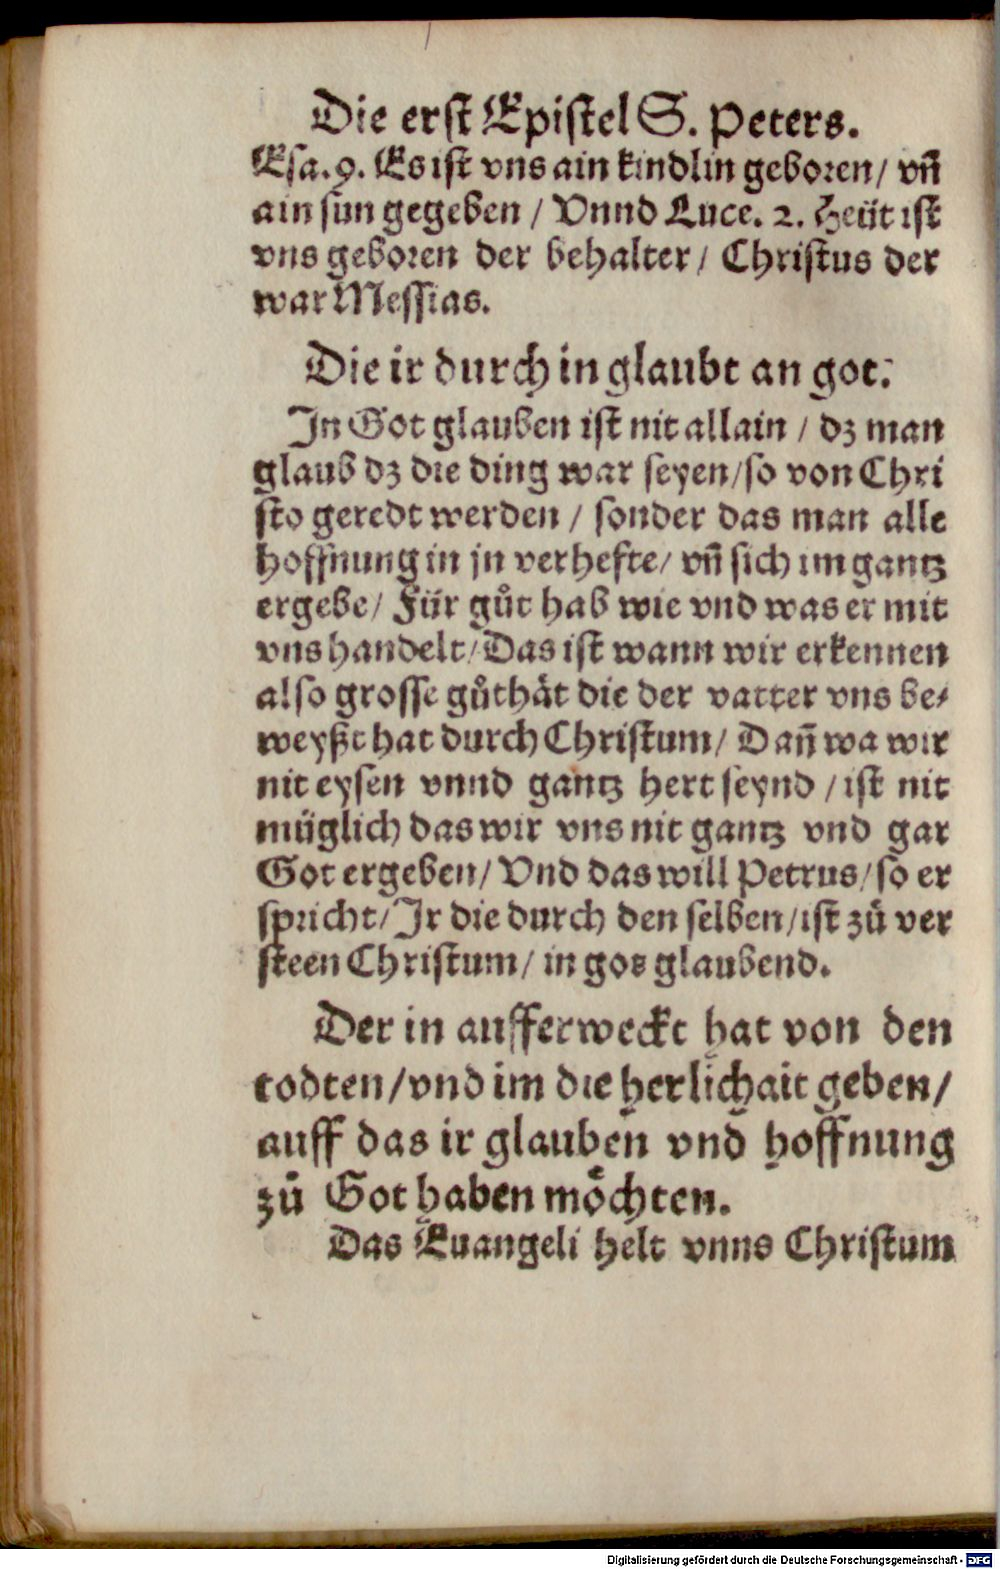 Die erst Epistel S. Peters.
Esa. 9. Es ist vns ain kindlin geboren / vn̄
ain sun gegeben / Vnnd Luce. 2. Heüt ist
vns geboren der behalter / Christus der
war Messias.
Die ir durch in glaubt an got.
In Got glauben ist nit allain / dz man
glaub dz die ding war seyen / so von Chri
sto geredt werden / sonder das man alle
hoffnung in jn verhefte / vn̄ sich im gantz
ergebe / Für gůt hab wie vnd was er mit
vns handelt / Das ist wann wir erkennen
also grosse gůthät die der vatter vns be-
weyßt hat durch Christum / Dan̄ wa wir
nit eysen vnnd gantz hert seynd / ist nit
müglich das wir vns nit gantz vnd gar
Got ergeben / Vnd das will Petrus / so er
spricht / Ir die durch den selben / ist zů ver
steen Christum / in gos glaubend.
Der in aufferweckt hat von den
todten / vnd im die herlichait geben /
auff das ir glauben vnd hoffnung
zů Got haben möchten.
Das Euangeli helt vnns Christum
Digitalisierung gefördert durch die Deutsche Forschungsgemeinschaft - DFG